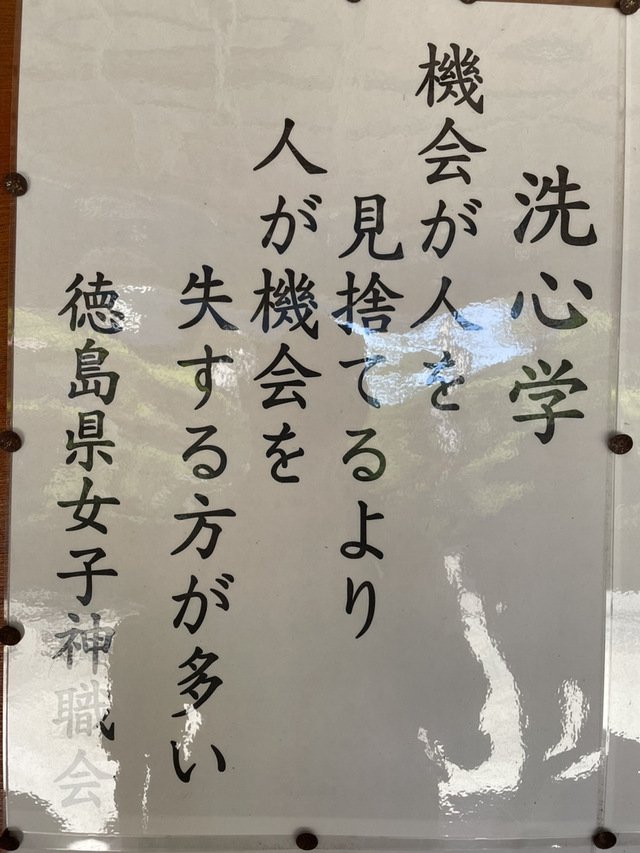 洗心学
機会が人を
見捨てるより
人が機会を
失する方が多い
徳島県女子神職会